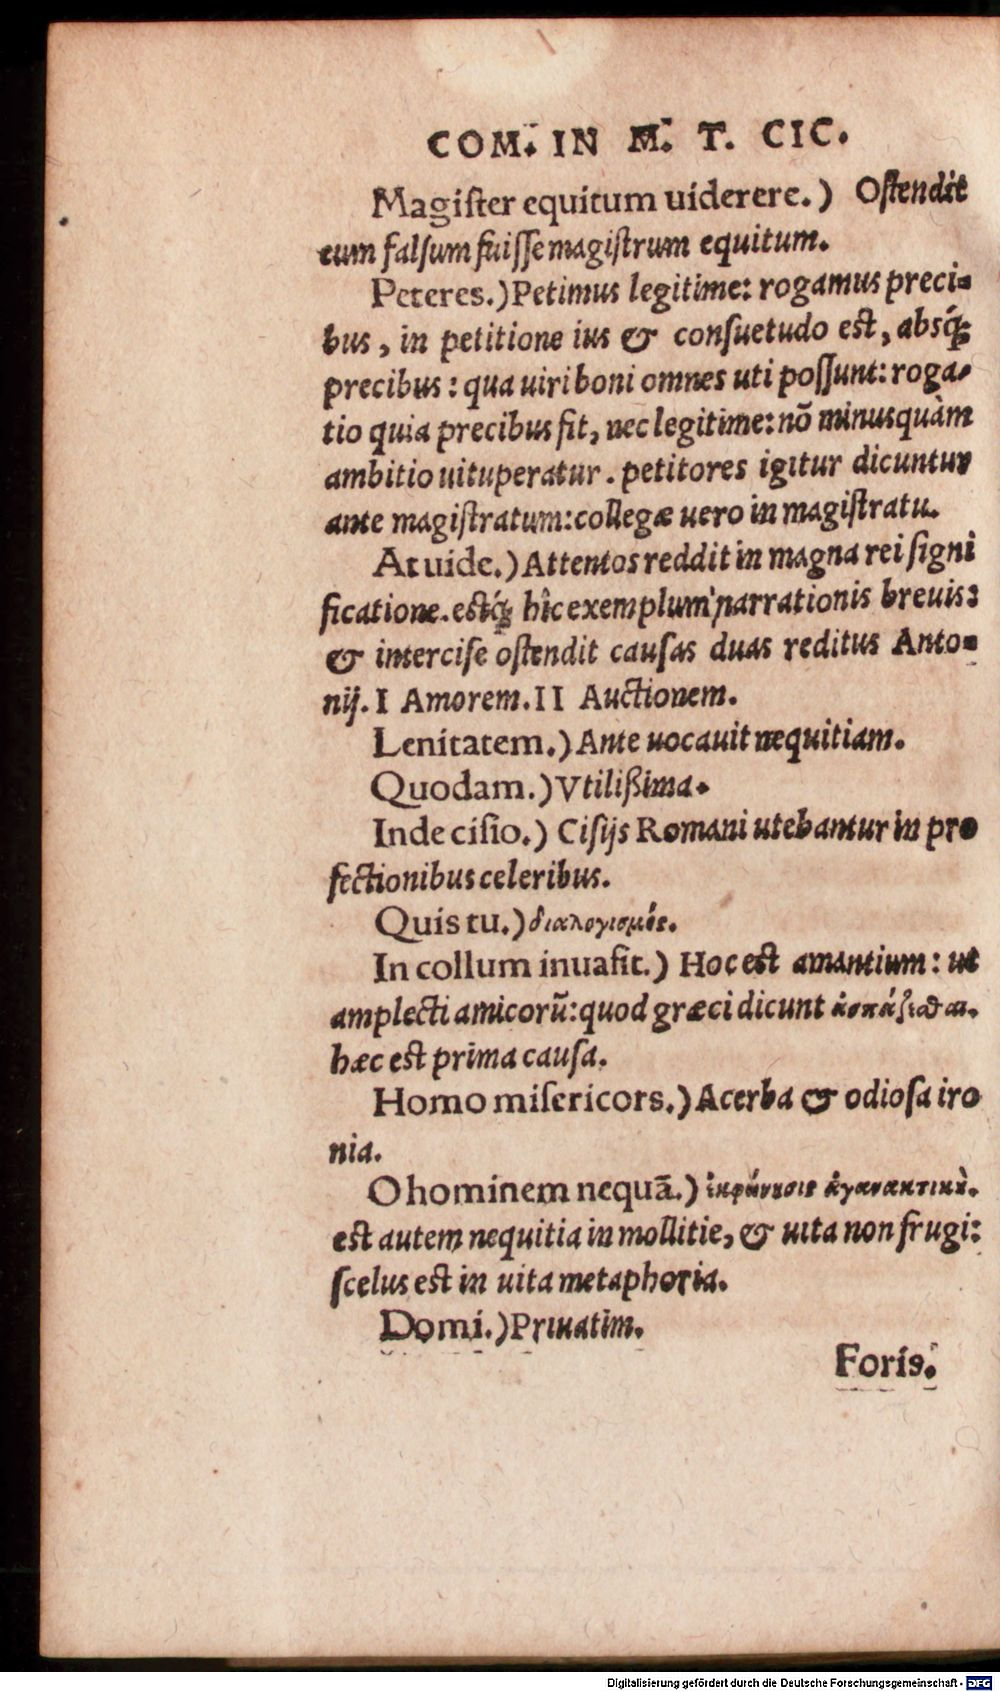 COM. IN M. T. CIC.
Magiſter equitum uiderere.) Oſtendit
eum falſum fuiſſe magiſtrum equitum.
Peteres.) Petimus legitime: rogamus preci-
bus, in petitione ius & conſuetudo est, absq́;
precibus: qua uiri boni omnes uti poſſunt: roga-
tio quia precibus fit, nec legitime: nō minus quàm
ambitio uituperatur. petitores igitur dicuntur
ante magiſtratum: collegæ uero in magiſtratu.
At uide.) Attentos reddit in magna rei ſigni
ficatione. estq́; hîc exemplum narrationis breuis:
& intercise oſtendit cauſas duas reditus Anto-
nij. I Amorem. II Auctionem.
Lenitatem.) Ante uocauit nequitiam.
Quodam.) Vtilißima.
Inde ciſio.) Ciſijs Romani utebantur in pro
fectionibus celeribus.
Quis tu.) διαλογισμός.
In collum inuaſit.) Hoc est amantium: ut
amplecti amicorū: quod græci dicunt ἀσπάζεσθαι.
hæc est prima cauſa.
Homo miſericors.) Acerba & odioſa iro
nia.
O hominem nequā.) ἐκφώνησις ἀγανακτική.
est autem nequitia in mollitie, & uita non frugi:
ſcelus est in uita metaphoria.
Domi.) Priuatim.
Foris.
Digitalisierung gefördert durch die Deutsche Forschungsgemeinschaft - DFG